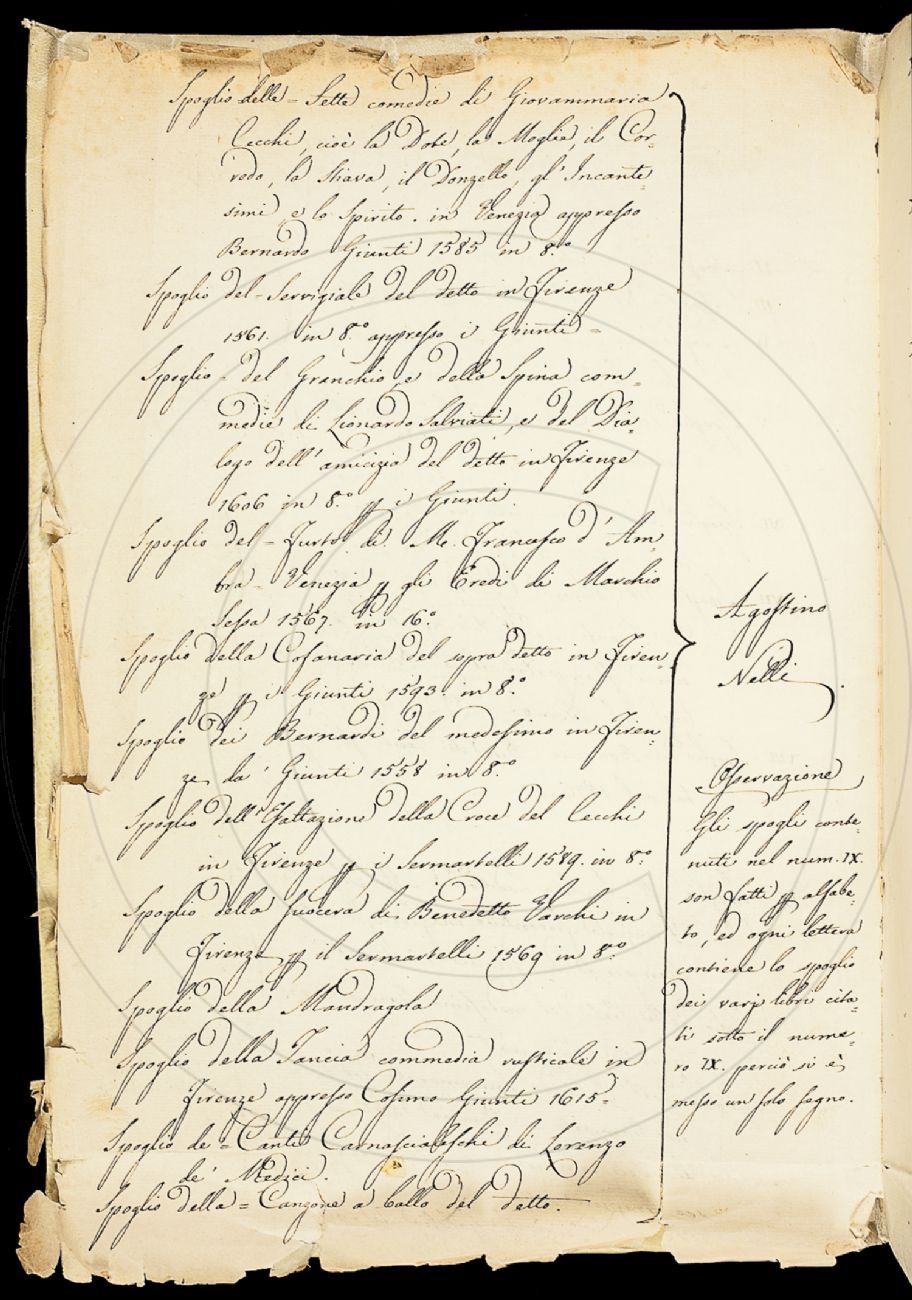 Spoglio delle = Sette comedie di Giovammaria
Cecchi, cioè la Dote, la Moglie, il Cor-
redo, la Stiava, il Donzello, gl' Incante
simi, e lo Spirito. in Venezia appresso
Bernardo Giunti 1585 in 8.º
Spoglio del = Servigiale del detto in Firenze
1561. in 8.º appresso i Giunti =
Spoglio = del Granchio, e della Spina com=
medie di Lionardo Salviati, e del Dia=
logo dell' amicizia del detto in Firenze
1606 in 8.º p i Giunti.
Spoglio del = Furto di M. Francesco d' Am=
bra = Venezia p gli Eredi di Marchio
Sessa 1567. in 16.º
Spoglio della Cofanaria del sopra detto in Firen=
ze p i Giunti 1593. in 8.º
Spoglio dei Bernardi del medesimo in Firen=
ze da' Giunti 1558 in 8.º
Spoglio dell' Esaltazione della Croce del Cecchi
in Firenze p i Sermartelli 1589. in 8.º
Spoglio della Suocera di Benedetto Varchi in
Firenze p il Sermartelli 1569 in 8.º
Spoglio della Mandragola
Spoglio della Tancia commedia rusticale in
Firenze appresso Cosimo Giunti 1615=
Spoglio de = Canti Carnascialeschi di Lorenzo
de' Medici.
Spoglio della = Canzone a ballo del detto.
Agostino
Nelli.
Osservazione
Gli spogli conte=
nuti nel num. IX.
son fatti p alfabe=
to, ed ogni lettera
contiene lo spoglio
dei varj libri cita=
ti sotto il nume=
ro IX. perciò si è
messo un solo segno.